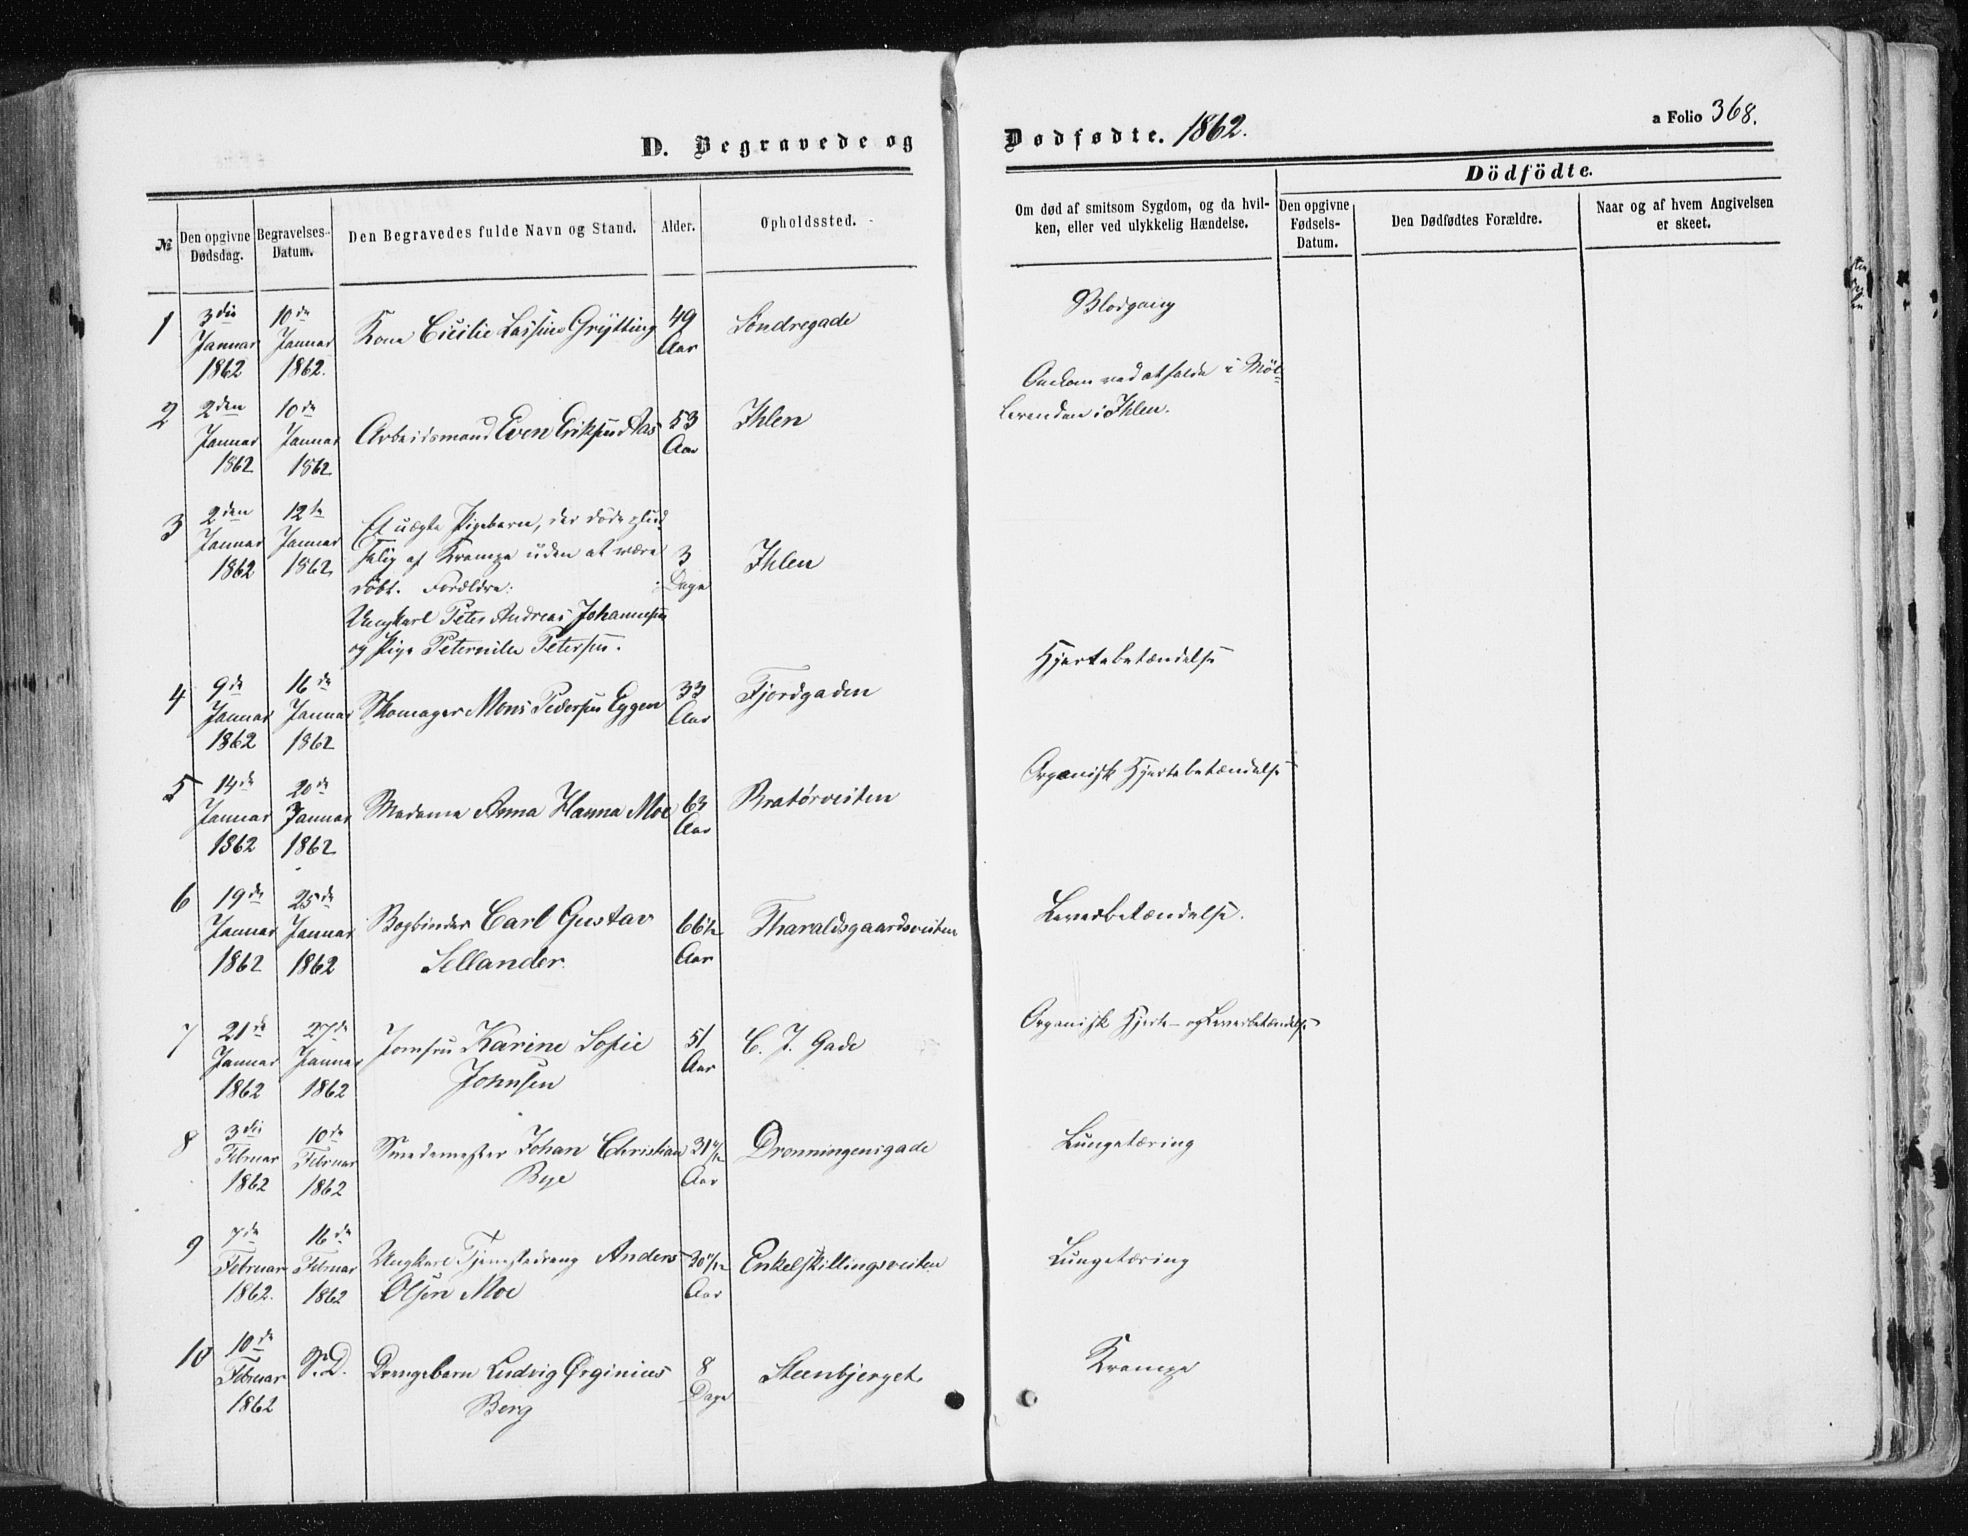 D. Begravede og Dødfødte. 1862.
a Folio 368.
Dödfödte.
№
Den opgivne Dødsdag.
Begravelses-Datum.
Den Begravedes fulde Navn og Stand.
Alder.
Opholdssted.
Om død af smitsom Sygdom, og da hvil-
ken, eller ved ulykkelig Hændelse.
Den opgivne Fødsels-Datum.
Den Dødfødtes Forældre.
Naar og af hvem Angivelsen
er skeet.
1
3die Januar 1862
10de Januar 1862.
Kone Cicilie Lassine Grÿtting
49 Aar
Söndregade
Blodgang
2
2den Januar 1862
10de Januar 1862
Arbeidsmand Even Eriksen Aas
53 Aar
Ihlen
Omkom ved at falde i Möl-
lerenden i Ihlen.
3
2den Januar 1862
12te Januar 1862
Et uægte Pigebarn, der döde plud
selig af Krampe uden at være
döbt. Forældre:
Ungkarl Peter Andreas Johannesen
og Pige Peternille Petersen.
3 Dage
Ihlen
4
9de Januar 1862
16de Januar 1862
Skomager Mons Pedersen Eggen
33 Aar
Fjordgaden
Hjertebetændelse
5
14de Januar 1862
20de Januar 1862
Madame Anna Hanna Moe
63 Aar
Bratörveiten
Organisk Hjertebetændelse
6
19de Januar 1862
25de Januar 1862
Bogbinder Carl Gustav
Sellander.
66½ Aar
Tharaldsgaardsveiten
Leverbetændelse.
7
21de Januar 1862
27de Januar 1862
Jomfru Karine Sofie
Johnsen
51 Aar
C. J. Gade
Organisk Hjerte- og Leverbetændelse
8
3die Februar 1862
10de Februar 1862
Smedemester Johan Christian
Bye
31 Aar
Dronningensgade
Lungetæring
9
7de Februar 1862.
16de Februar 1862
Ungkarl Tjenestedreng Anders
Olsen Moe
20 Aar
Enkelskillingsveiten
Lungetæring
10
10de Februar 1862
S. D.
Drengebarn Ludvig Ørginius
Berg
8 Dage
Steenbjerget.
Krampe